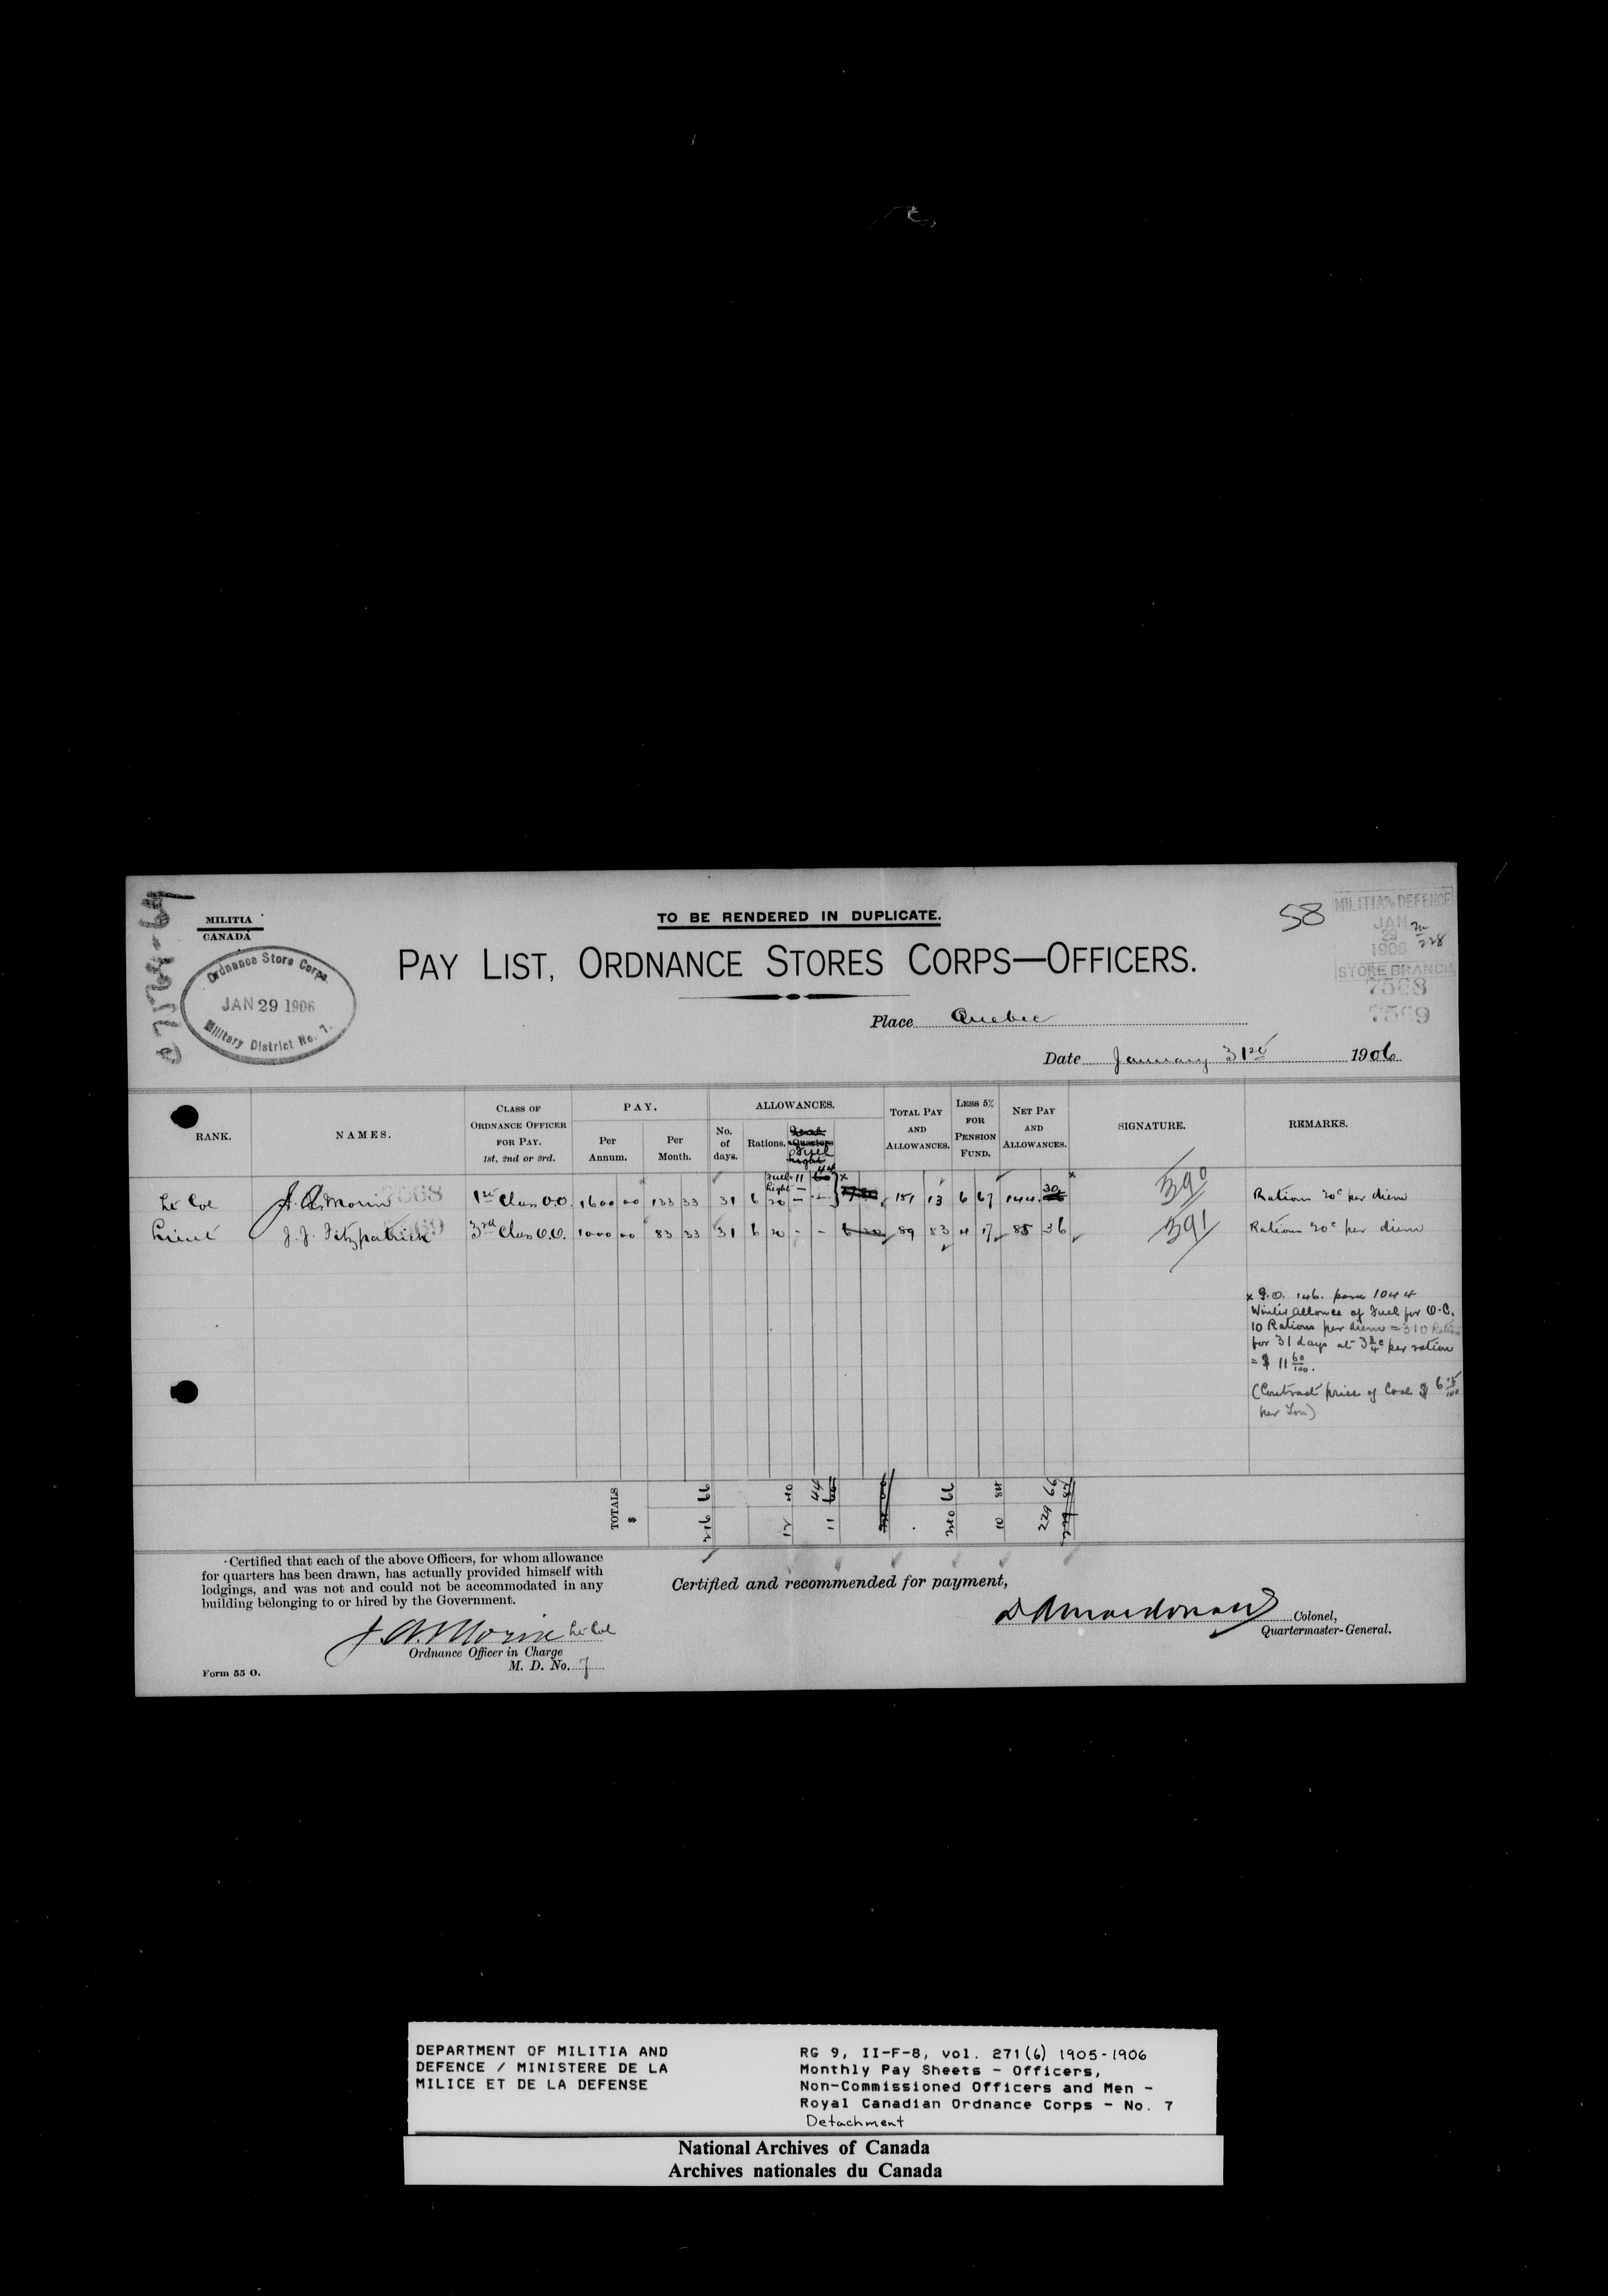 MILITIA
CANADA
TO BE RENDERED IN DUPLICATE.
58
MILITIA & DEFENCE
JAN
29
1906
STORE BRANCH
7568
7569
Ordnance Store Corps
JAN 29 1906
Military District No. 7.
PAY LIST, ORDNANCE STORES CORPS—OFFICERS.
Place Quebec
Date January 31st 1906
RANK.
NAMES.
CLASS OF ORDNANCE OFFICER FOR PAY. 1st, 2nd or 3rd.
PAY.
Per Annum.
Per Month.
ALLOWANCES.
No. of days.
Rations.
Fuel
Light
TOTAL PAY AND ALLOWANCES.
LESS 5% FOR PENSION FUND.
NET PAY AND ALLOWANCES.
SIGNATURE.
REMARKS.
Fuel 11 44
Light — —
Lt Col J. A. Morin 7568 1st Class O.O. 1600 00 133 33 31 6 20 151 13 6 67 144 30 390 Rations 20c per diem
Lieut J. J. Fitzpatrick 7569 3rd Class O.O. 1000 00 83 33 31 6 20 - - 89 53 4 17 85 36 391 Rations 20c per diem
x G.O. 146. para 1044
Winter Allowce of Fuel for O.C.
10 Rations per diem = 310 Rations
for 31 days at 3 3/4c per ration
= $ 11 60/100.
(Contract price of Coal $ 6 15/100
per Ton)
TOTALS $ 216 66 12 40 11 44 240 66 10 84 229 66
Certified that each of the above Officers, for whom allowance
for quarters has been drawn, has actually provided himself with
lodgings, and was not and could not be accommodated in any
building belonging to or hired by the Government.
J. A. Morin Lt Col
Ordnance Officer in Charge
M. D. No. 7
Form 55 O.
Certified and recommended for payment,
D A Macdonald Colonel,
Quartermaster-General.
DEPARTMENT OF MILITIA AND
DEFENCE / MINISTERE DE LA
MILICE ET DE LA DEFENSE
RG 9, II-F-8, vol. 271(6) 1905-1906
Monthly Pay Sheets - Officers,
Non-Commissioned Officers and Men -
Royal Canadian Ordnance Corps - No. 7
Detachment
National Archives of Canada
Archives nationales du Canada